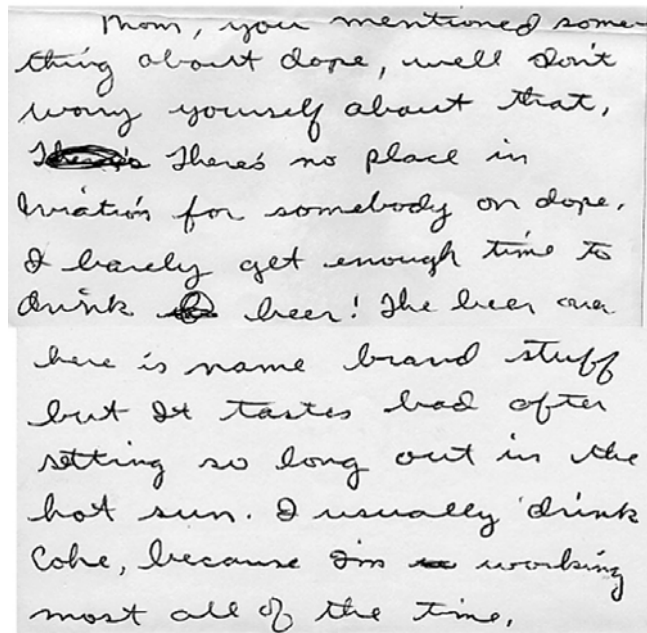 Mom, you mentioned some-
thing about dope, well don't
worry yourself about that,
There's no place in
Aviation for somebody on dope.
I barely get enough time to
drink beer! The beer over
here is name brand stuff
but It tastes bad after
setting so long out in the
hot sun. I usually drink
Coke, because I'm working
most all of the time.